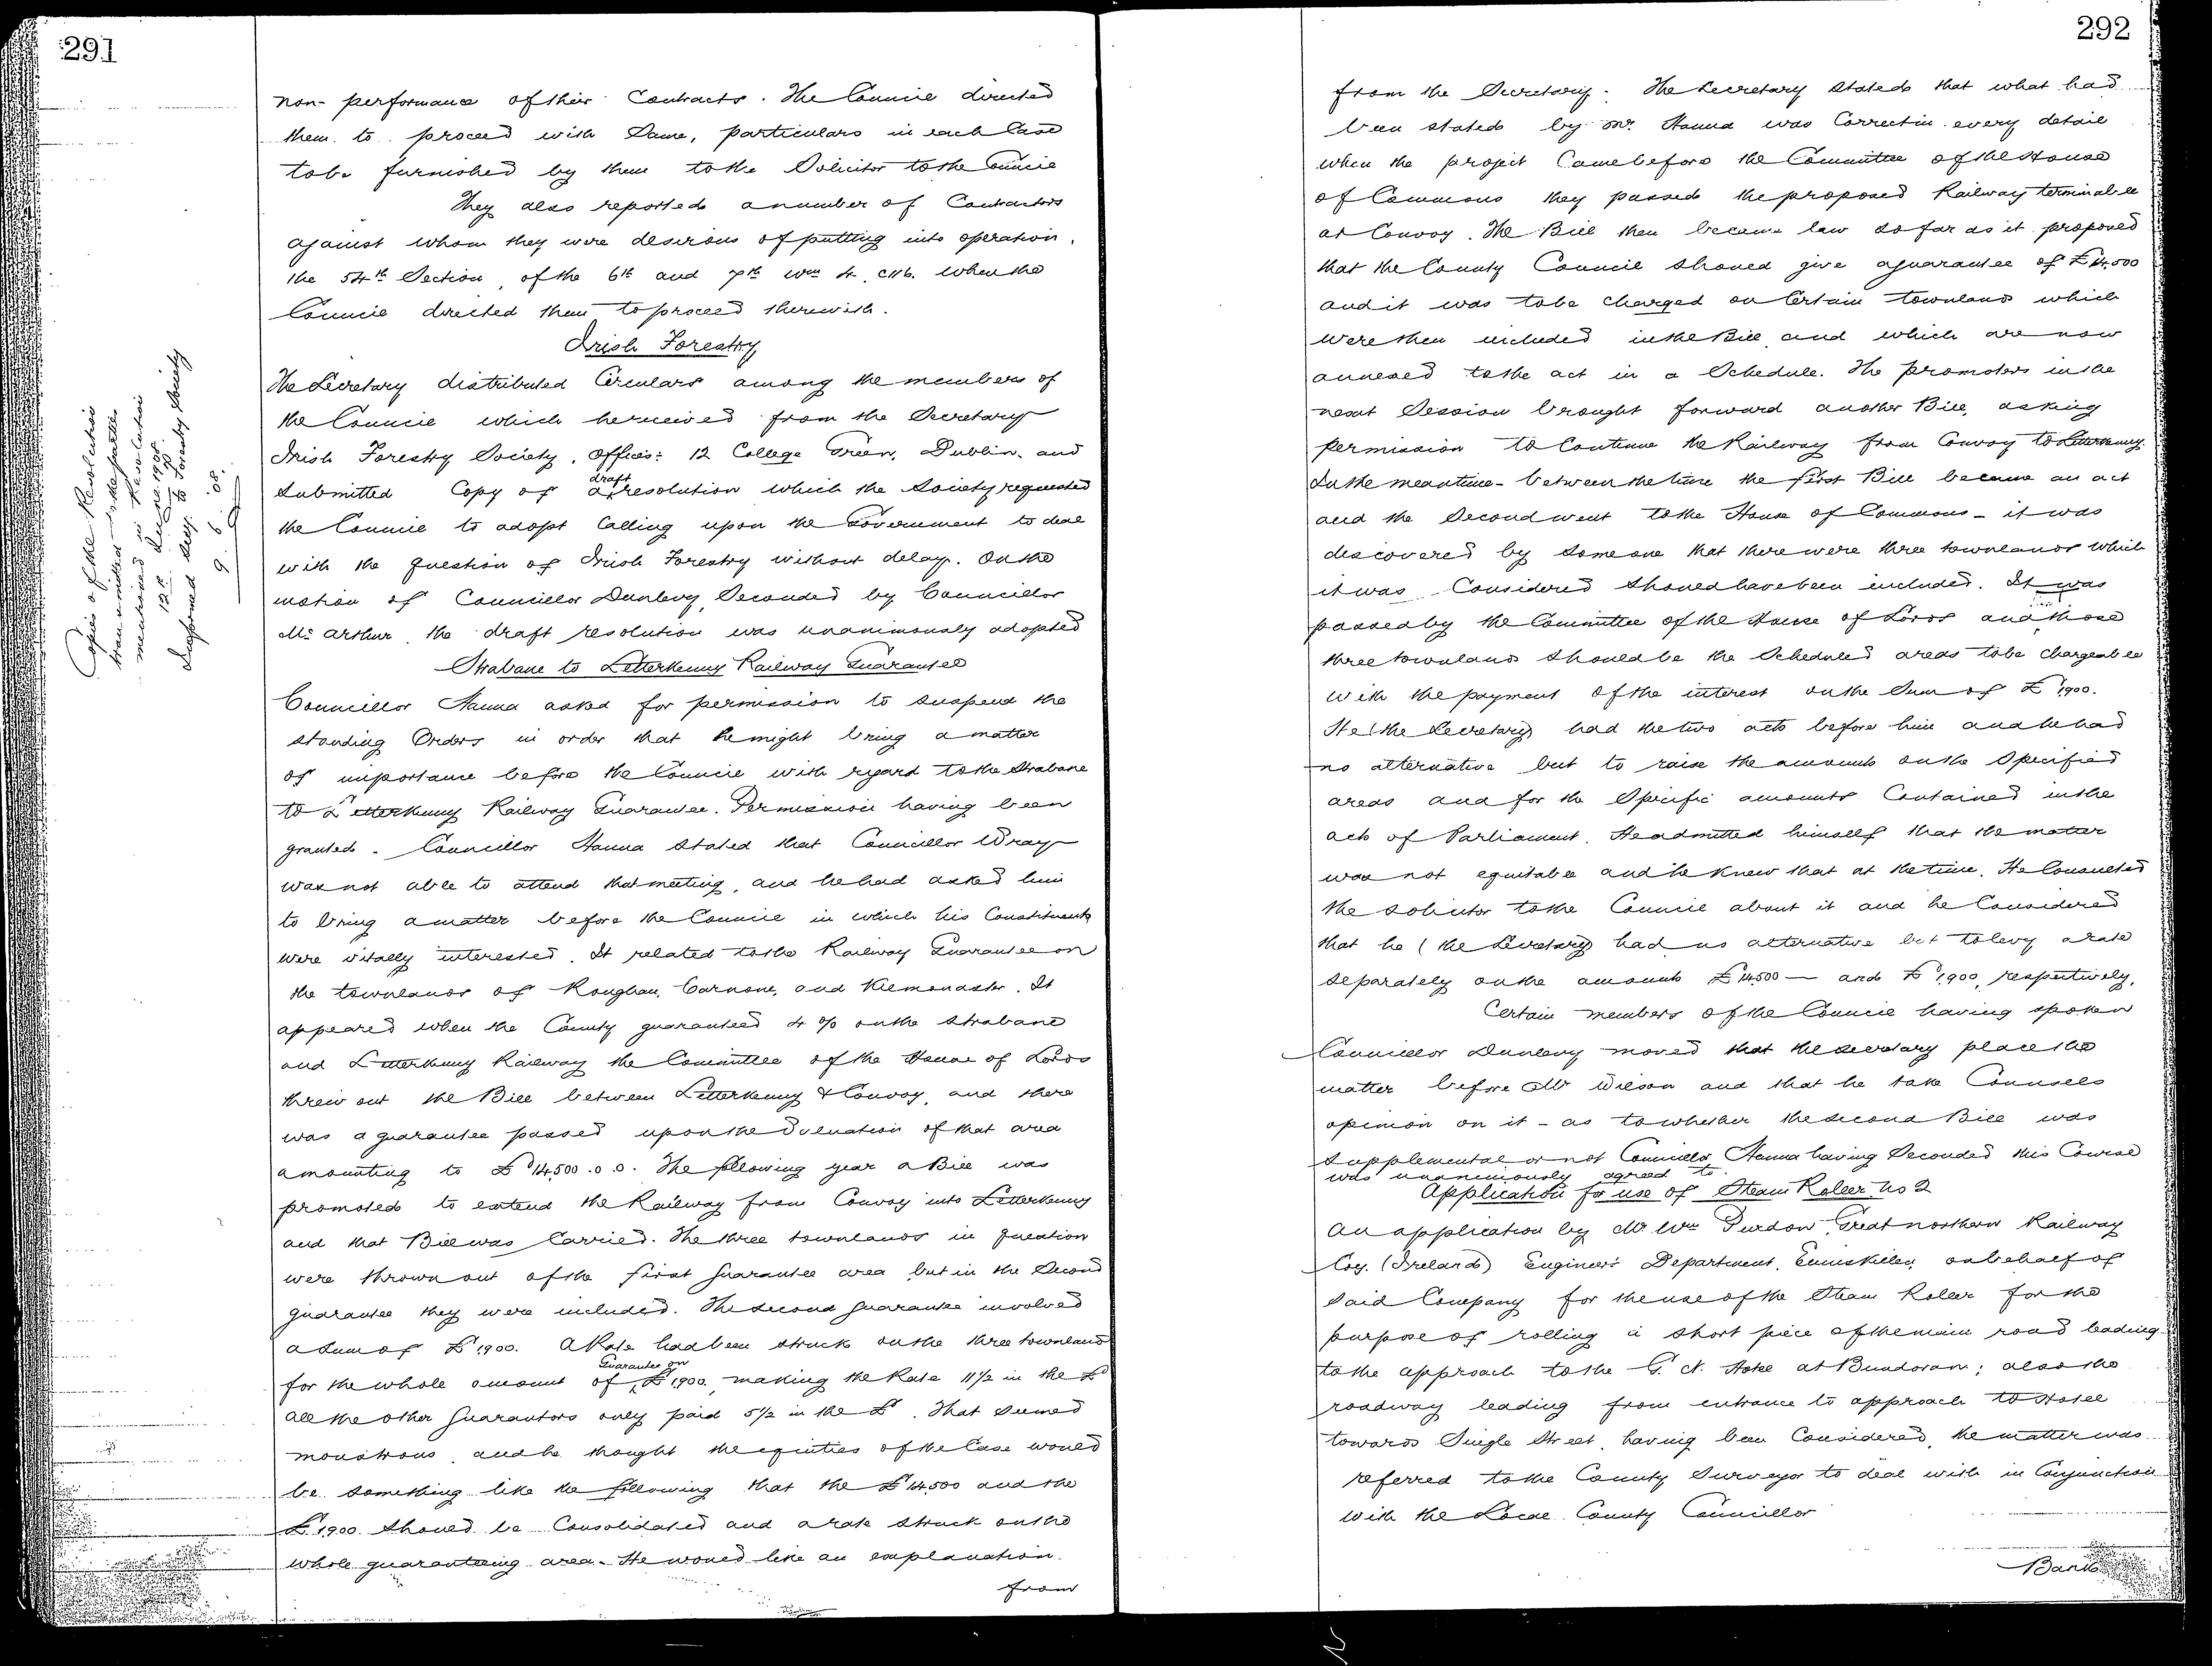 291
non-performance of their Contracts. The Council directed
them to proceed with Same, particulars in each Case
to be furnished by them to the Solicitor to the Council
They also reported a number of Contractors
against whom they were desirous of putting into operation,
the 54th Section, of the 6th and 7th Wm 4. c116. when the
Council directed them to proceed therewith.
Irish Forestry
The Secretary distributed Circulars among the members of
the Council which he received from the Secretary
Irish Forestry Society, Offices: 12 College Green, Dublin, and
draft
Submitted Copy of a resolution which the Society requested
the Council to adopt Calling upon the Government to deal
with the question of Irish Forestry without delay. On the
motion of Councillor Dunlevy, Seconded by Councillor
McArthur, the draft resolution was unanimously adopted
Copies of the Resolution
transmitted to the parties
mentioned in Resolution
12th June 1908.
Informed Secy. to Forestry Society
9. 6. 08.
Strabane to Letterkenny Railway Guarantee
Councillor Hanna asked for permission to suspend the
standing Orders in order that he might bring a matter
of importance before the Council with regard to the Strabane
to Letterkenny Railway Guarantee. Permission having been
granted. Councillor Hanna stated that Councillor Wray
was not able to attend that meeting, and he had asked him
to bring a matter before the Council in which his Constituents
were vitally interested. It related to the Railway Guarantee on
the townlands of Roughan, Carnone, and Kilmonaster. It
appeared when the County guaranteed 4 % on the Strabane
and Letterkenny Railway the Committee of the House of Lords
threw out the Bill between Letterkenny & Convoy, and there
was a guarantee passed upon the Valuation of that area
amounting to £14,500.0.0. The following year a Bill was
promoted to extend the Railway from Convoy into Letterkenny
and that Bill was Carried. The three townlands in question
were thrown out of the first Guarantee area but in the Second
guarantee they were included. The second Guarantee involved
a Sum of £1,900. A Rate had been struck on the three townlands
Guarantee on
for the whole amount of £1,900, making the Rate 11½ in the £
all the other Guarantors only paid 5½ in the £. That seemed
monstrous and he thought the equities of the Case would
be something like the following that the £14,500 and the
£1,900 should be Consolidated and a rate struck on the
whole guaranteeing area. He would like an explanation
from
292
from the Secretary. The Secretary stated that what had
been stated by Mr. Hanna was Correct in every detail
when the project Came before the Committee of the House
of Commons they passed the proposed Railway terminable
at Convoy. The Bill then became law so far as it proposed
that the County Council should give a guarantee of £14,500
and it was to be charged on Certain townlands which
were then included in the Bill and which are now
annexed to the act in a Schedule. The promoters in the
next Session brought forward another Bill, asking
permission to Continue the Railway from Convoy to Letterkenny.
In the meantime - between the time the first Bill became an act
and the Second went to the House of Commons - it was
discovered by someone that there were three townlands which
it was Considered should have been included. It was
passed by the Committee of the House of Lords and those
three townlands should be the Scheduled areas to be chargeable
with the payment of the interest on the Sum of £1,900.
He (the Secretary) had the two acts before him and he had
no alternative but to raise the amounts on the Specified
areas and for the Specific amounts Contained in the
acts of Parliament. He admitted himself that the matter
was not equitable and he knew that at the time. He Consulted
the Solicitor to the Council about it and he Considered
that he (the Secretary) had no alternative but to levy a rate
separately on the amounts £14,500 - and £1,900, respectively.
Certain members of the Council having spoken
Councillor Dunlevy moved that the secretary place the
matter before Mr Wilson and that he take Counsels
opinion on it - as to whether the second Bill was
supplemental or not Councillor Hanna having Seconded this Course
was unanimously agreed to.
Application for use of Steam Roller No 2
An application by Mr Wm Purdon, Great northern Railway
Coy. (Ireland) Engineers Department, Enniskillen, on behalf of
said Company for the use of the Steam Roller for the
purpose of rolling a short piece of the main road leading
to the approach to the G. N. Hotel at Bundoran; also the
roadway leading from entrance to approach to Hotel
towards Single Street, having been Considered, the matter was
referred to the County Surveyor to deal with in Conjunction
with the Local County Councillor